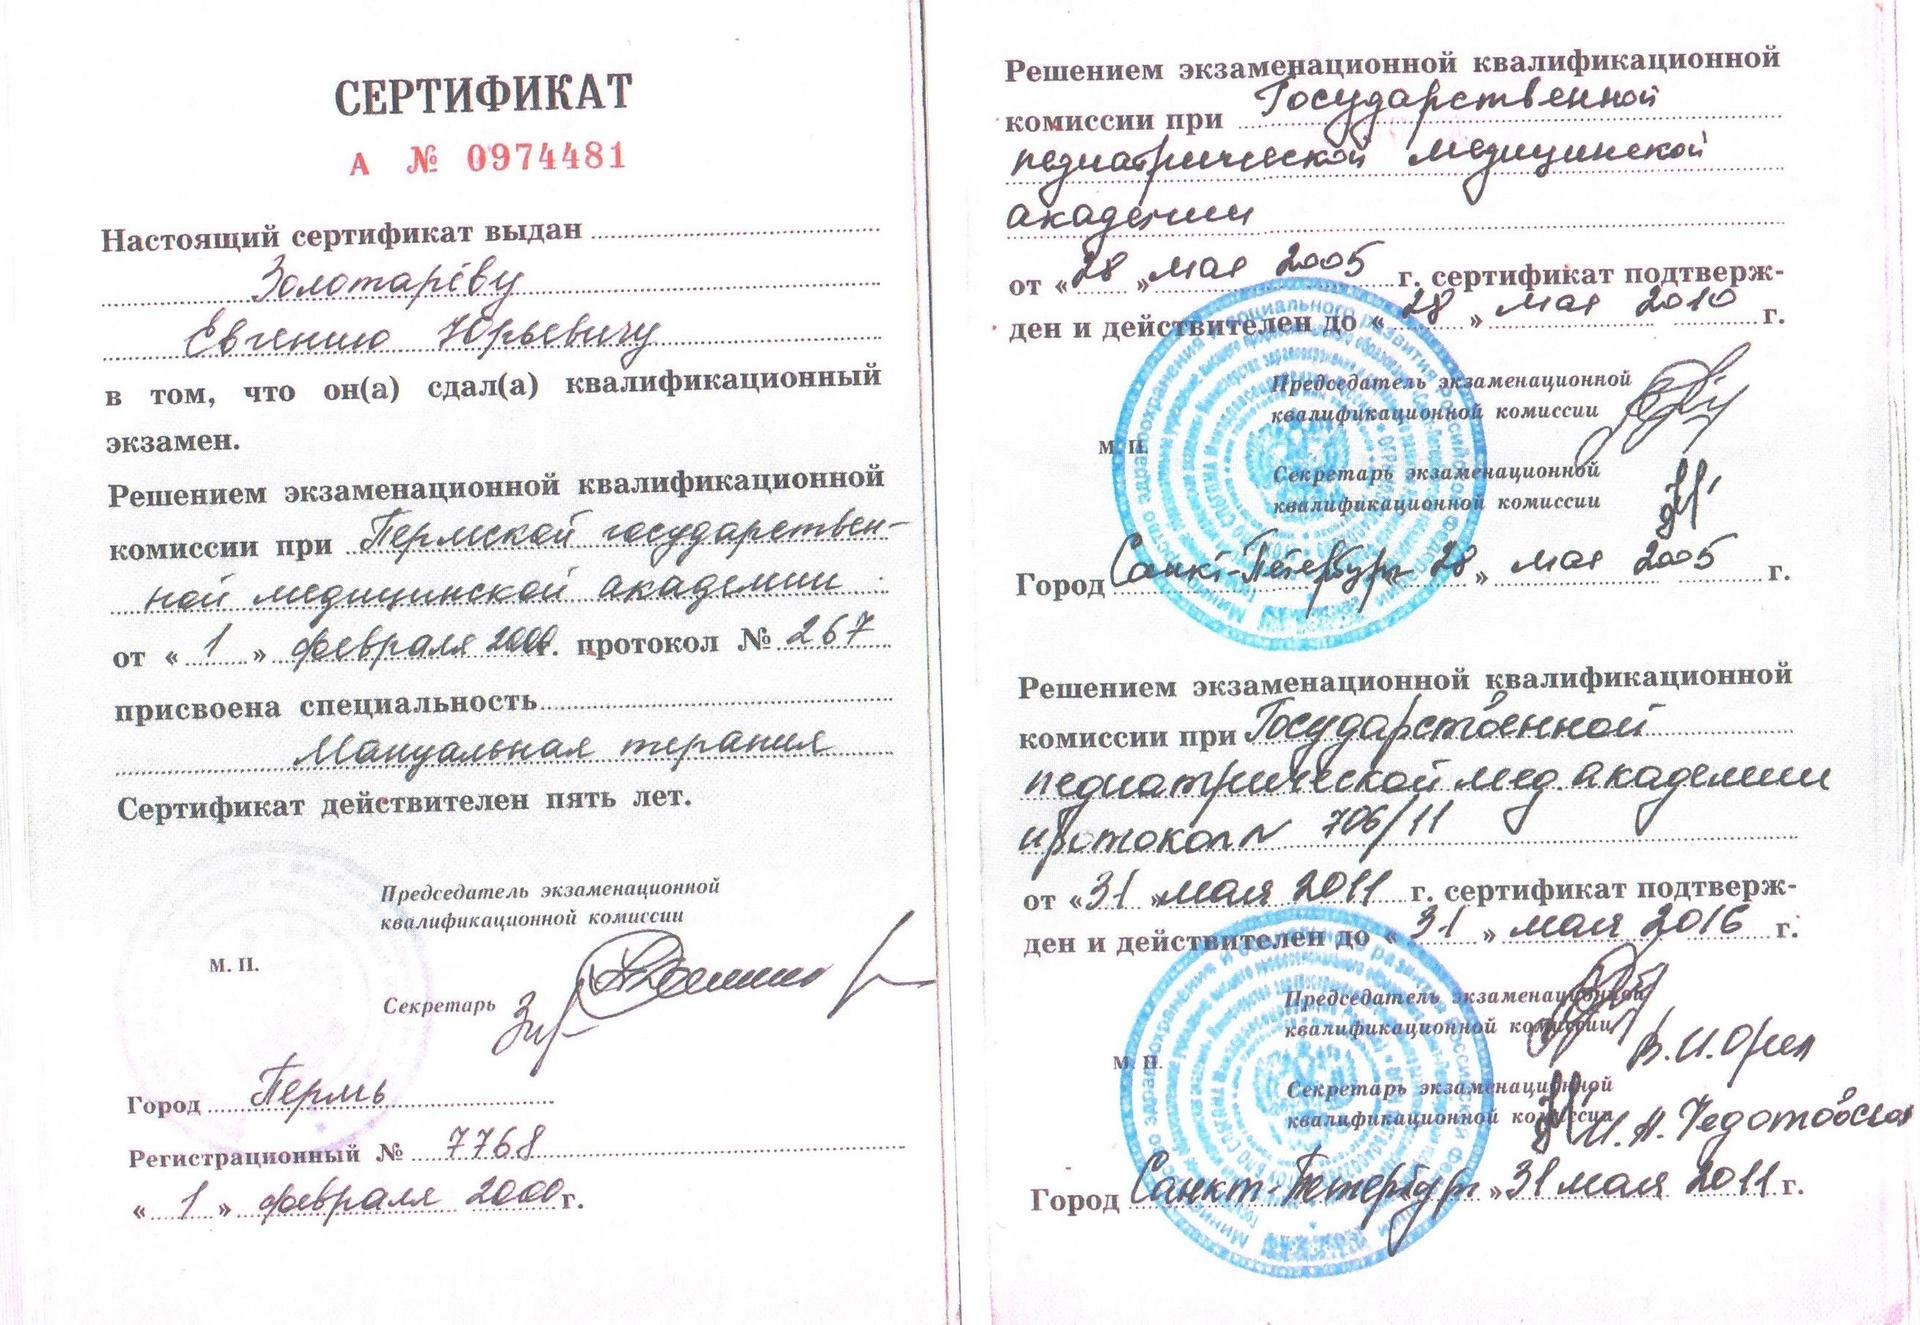 СЕРТИФИКАТ
А № 0974481
Настоящий сертификат выдан
Золотарёву
Евгению Юрьевичу
в том, что он(а) сдал(а) квалификационный
экзамен.
Решением экзаменационной квалификационной
комиссии при Пермской государствен-
ной медицинской академии
от « 1 » февраля 2000 г. протокол № 267
присвоена специальность
Мануальная терапия
Сертификат действителен пять лет.
Председатель экзаменационной
квалификационной комиссии
М. П.
Секретарь
Город Пермь
Регистрационный № 7768
« 1 » февраля 2000 г.
Решением экзаменационной квалификационной
комиссии при Государственной
педиатрической медицинской
академии
от «28» мая 2005 г. сертификат подтверж-
ден и действителен до «28» мая 2010 г.
Председатель экзаменационной
квалификационной комиссии
М. П.
Секретарь экзаменационной
квалификационной комиссии
Город Санкт-Петербург 28 » мая 2005 г.
Решением экзаменационной квалификационной
комиссии при Государственной
педиатрической мед. академии
протокол N 706/11
от «31 » мая 2011 г. сертификат подтверж-
ден и действителен до « 31 » мая 2016 г.
Председатель экзаменационной
квалификационной комиссии
В. И. Орел
М. П.
Секретарь экзаменационной
квалификационной комиссии
Город Санкт-Петербург » 31 мая 2011 г.